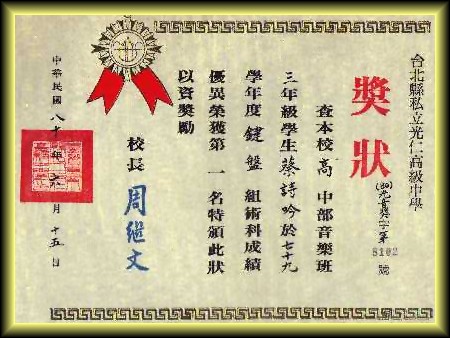 台北縣私立光仁高級中學
獎狀
(80)光音獎字第8102號
查本校高中部音樂班
三年級學生蔡詩吟於七十九
學年度鍵盤組術科成績
優異榮獲第一名特頒此狀
以資獎勵
校長 周继文
中華民國八十年六月十五日